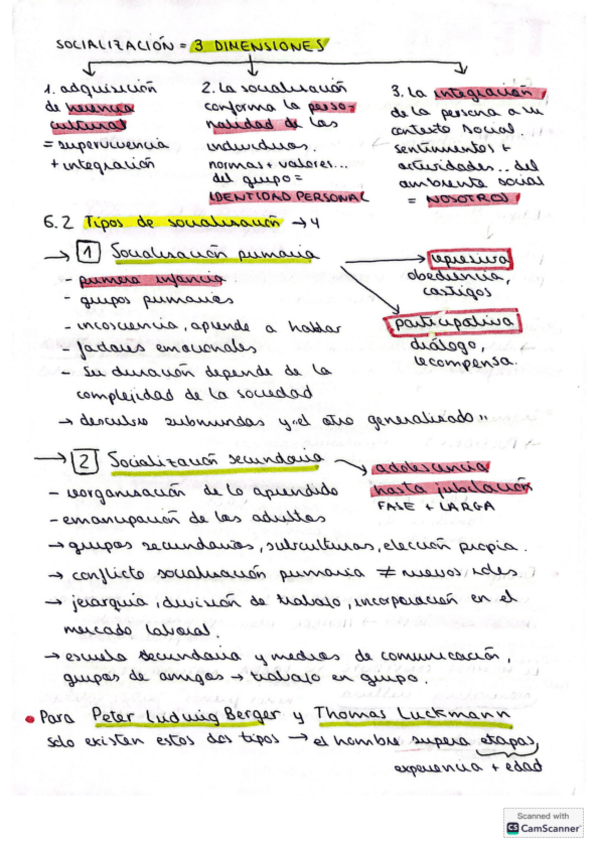 SOCIALIZACIÓN = 3 DIMENSIONES
1. adquisición
de herencia
cultural
= supervivencia
+ integración
2. La socialización
conforma la perso-
nalidad de los
individuos.
normas + valores...
del grupo =
IDENTIDAD PERSONAL
3. La integración
de la persona a su
contexto social.
sentimientos +
actividades.. del
ambiente social
= NOSOTROS
6.2 Tipos de socialización → 4
→ 1 Socialización primaria
- primera infancia
- grupos primarios
- incosciencia, aprende a hablar
- factores emocionales
- Su duración depende de la
complejidad de la sociedad
→ descubre submundos y "el otro generalizado"
represiva
obediencia,
castigos
participativa
diálogo,
recompensa.
→ 2 Socialización secundaria
adolescencia
hasta jubilación
FASE + LARGA
- reorganización de lo aprendido
- emancipación de los adultos
→ grupos secundarios, subculturas, elección propia.
→ conflicto socialización primaria ≠ nuevos roles
→ jerarquía, división de trabajo, incorporación en el
mercado laboral.
→ escuela secundaria y medios de comunicación,
grupos de amigos → trabajo en grupo.
• Para Peter Ludwig Berger y Thomas Luckmann
solo existen estos dos tipos → el hombre supera etapas
experiencia + edad
Scanned with
CS CamScanner